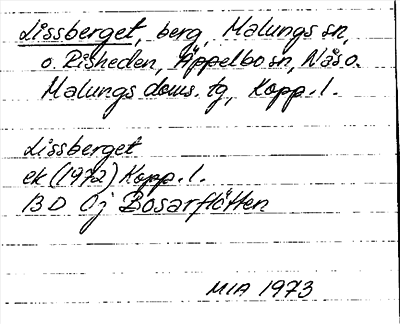 Lissberget, berg, Malungs sn,
o. Risheden, Äppelbo sn, Nås o.
Malungs doms. tg, Kopp. l.
Lissberget
ek (1972) Kopp. l.
13 D 0j Bosarflötten
MIA 1973